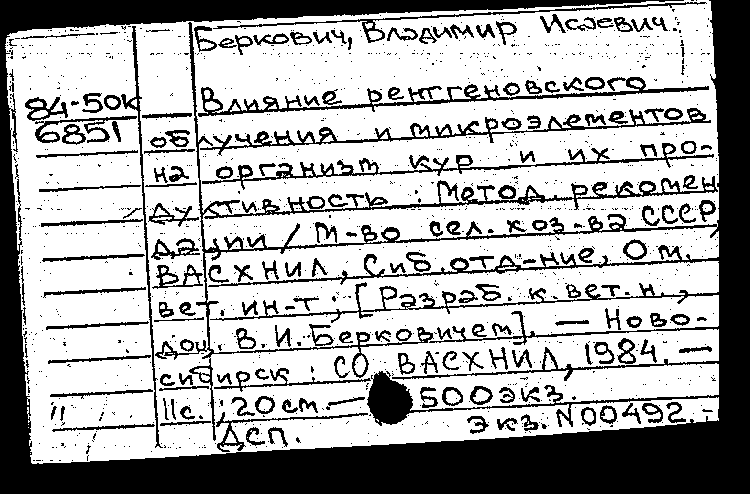 Беркович, Владимир Исаевич.
84-50к Влияние рентгеновского
6851 облучения и микроэлементов
на организм кур и их про-
дуктивность : Метод. рекомен
дации / М-во сел. хоз-ва СССР,
ВАСХНИЛ, Сиб. отд-ние, Ом.
вет. ин-т ; [Разраб. к. вет. н.,
доц. В. И. Берковичем]. — Ново-
сибирск : СО ВАСХНИЛ, 1984. —
11с. ; 20 см. — 500 экз.
Дсп. Экз. N00492. -